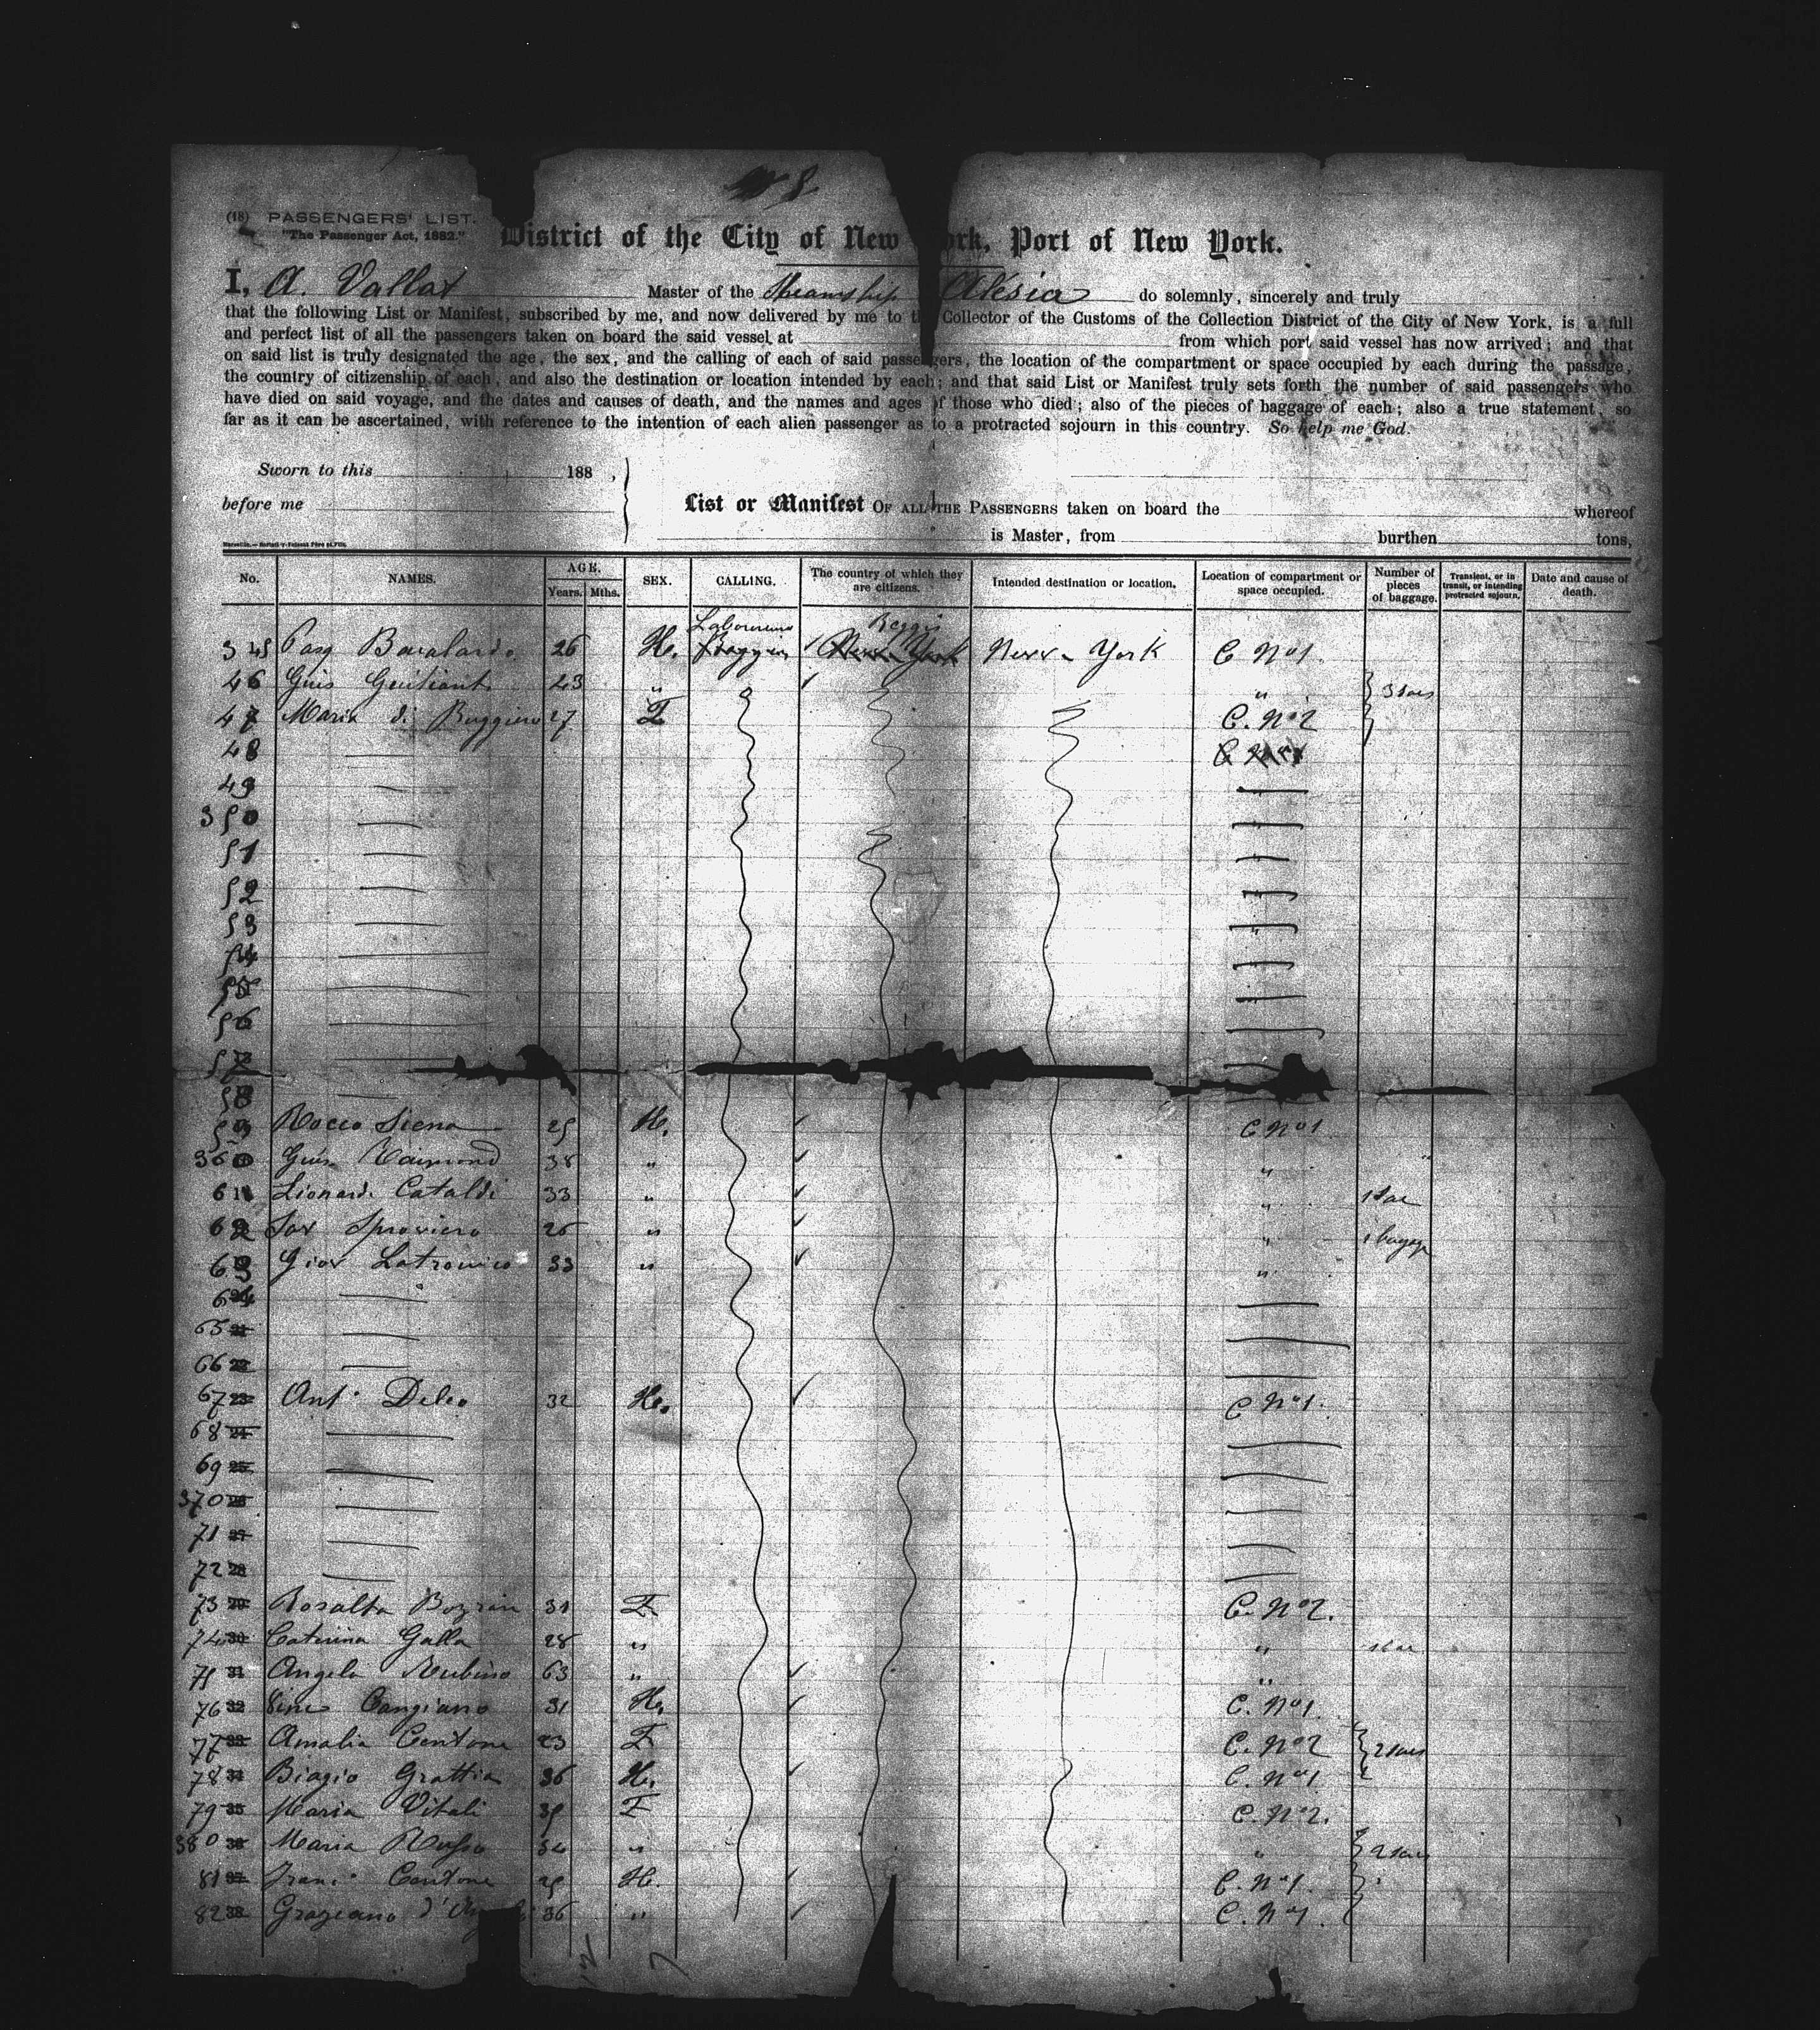 N 8
(18) PASSENGERS' LIST.
"The Passenger Act, 1882."
District of the City of New York, Port of New York.
I, A. Vallat Master of the Steamship Alesia do solemnly, sincerely and truly
that the following List or Manifest, subscribed by me, and now delivered by me to the Collector of the Customs of the Collection District of the City of New York, is a full
and perfect list of all the passengers taken on board the said vessel at from which port said vessel has now arrived; and that
on said list is truly designated the age, the sex, and the calling of each of said passengers, the location of the compartment or space occupied by each during the passage,
the country of citizenship of each, and also the destination or location intended by each; and that said List or Manifest truly sets forth the number of said passengers who
have died on said voyage, and the dates and causes of death, and the names and ages of those who died; also of the pieces of baggage of each; also a true statement, so
far as it can be ascertained, with reference to the intention of each alien passenger as to a protracted sojourn in this country. So help me God.
Sworn to this 188 ,
before me
List or Manifest OF ALL THE PASSENGERS taken on board the whereof
is Master, from burthen tons,
No. NAMES. AGE. Years. Mths. SEX. CALLING. The country of which they are citizens. Intended destination or location. Location of compartment or space occupied. Number of pieces of baggage. Transient, or in transit, or intending protracted sojourn. Date and cause of death.
Reggio
345 Pasq 26 H. New York New York C No 1.
46 Gius 23 "  "  3 sacs
47 Maria di Ruggiero 27 F C. No 2
48
49
350
51
52
53
54
55
56
57
58
59 Rocco Siena 25 H. C No 1
360 Gius Raimond 38 " "
61 Lionardi Cataldi 33 " " 1 sac
62 Sav Sproviero 26 " " 1
63 Giov Latronico 33 " "
64
65
66
67 Ant. Deleo 32 H. C No 1.
68
69
370
71
72
73 Rosalba 31 F C. No 2.
74 Caterina Galla 28 " " 1 sac
75 Angela Rubino 63 " "
76 Vinc Cangiano 31 H. C. No 1.
77 Amalia Centone 23 F C. No 2 2 sacs
78 Biagio Grattia 36 H. C. No 1
79 Maria Vitali 35 F C. No 2.
380 Maria Russo 34 " " 2 sacs
81 Franc. Centone 25 H. C. No 1.
82 Graziano d' 36 " C. No 1.
12 7